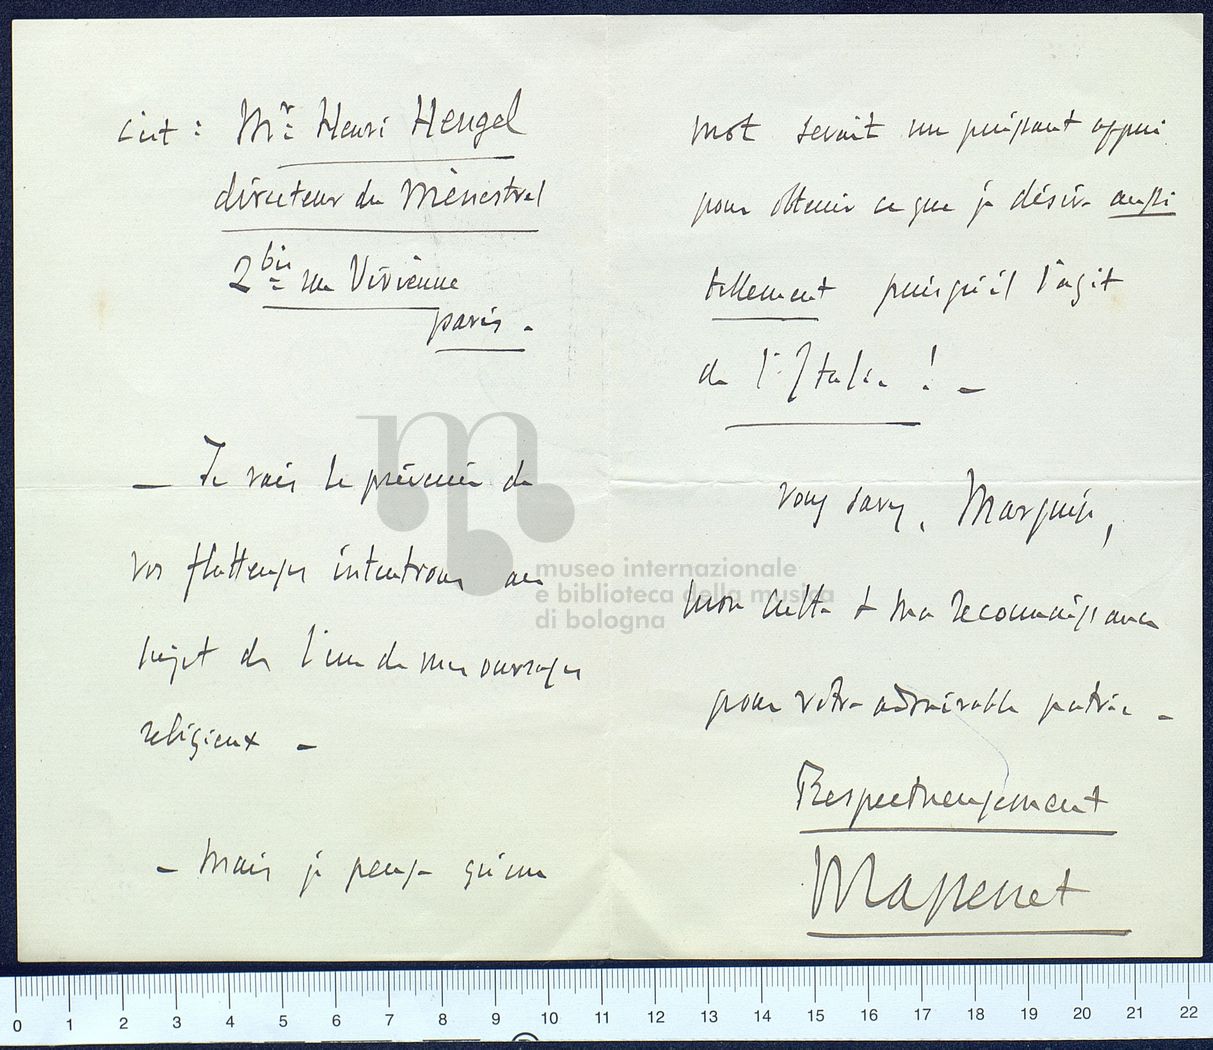 c'est : Mr Henri Heugel
directeur du Ménestrel
2 bis rue Vivienne
paris.
— Je vais le prévenir de
vos flatteuses intentions au
sujet de l'un de mes ouvrages
religieux —
— Mais je pense qu'un
mot serait un puissant appui
pour obtenir ce que je désire aussi
tellement puisqu'il s'agit
de l'Italie ! —
vous savez, Marquis,
mon culte & ma reconnaissance
pour votre admirable patrie —
Respectueusement
Massenet
museo internazionale
e biblioteca della musica
di bologna
0 1 2 3 4 5 6 7 8 9 10 11 12 13 14 15 16 17 18 19 20 21 22